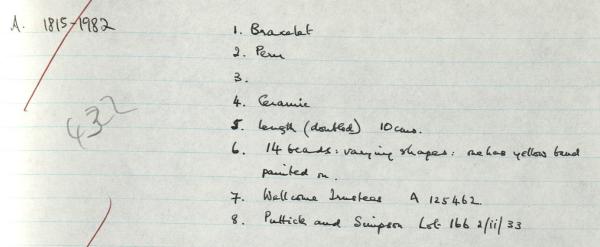 A. 1815-1982
1. Bracelet
2. Peru
3.
432
4. Ceramic
5. Length (doubled) 10cms.
6. 14 beads: varying shapes: one has yellow band
painted on.
7. Wellcome Trustees A 125462
8. Puttick and Simpson Lot 166 2/ii/33